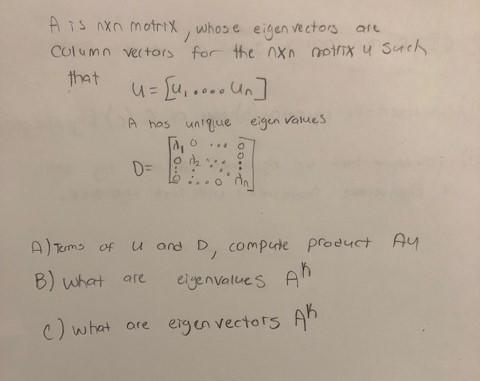 A is nxn motrix, whose eigenvectors are
column vectors for the nxn motrix u such
that
u = [u, .... un]
A has unique eigenvalues
D= [λ1 0 ... 0
0 λ2 ... 0
0 ... 0 λn]
A) Terms of u and D, compute product Au
B) what are eigenvalues A^k
C) what are eigenvectors A^k